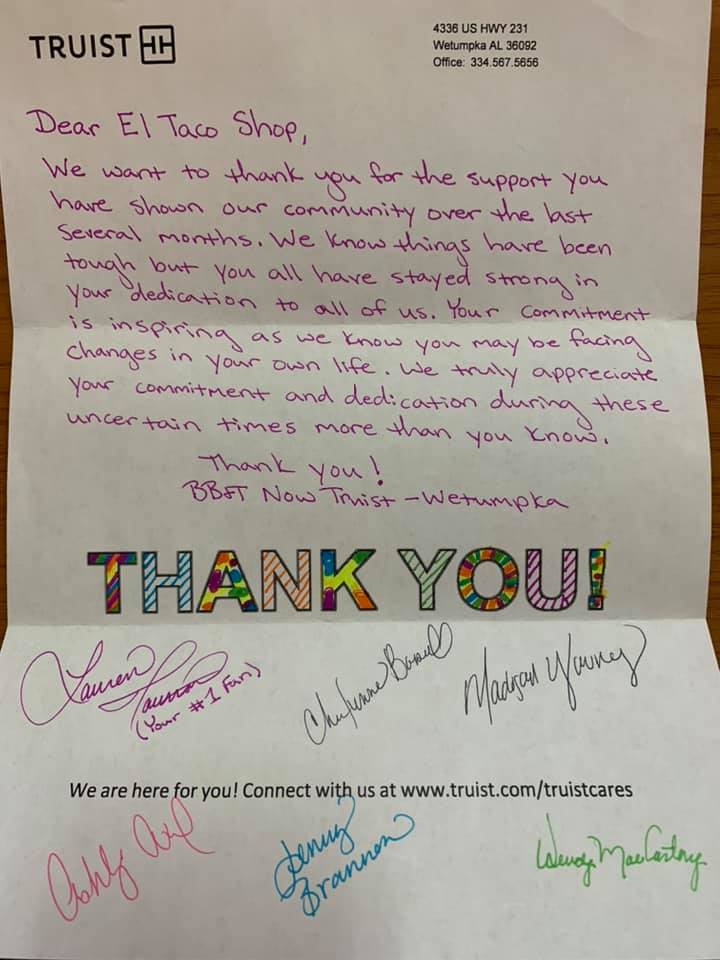 TRUIST
4336 US HWY 231
Wetumpka AL 36092
Office: 334.567.5656
Dear El Taco Shop,
We want to thank you for the support you
have shown our community over the last
several months. We know things have been
tough but you all have stayed strong in
your dedication to all of us. Your commitment
is inspiring as we know you may be facing
changes in your own life. We truly appreciate
your commitment and dedication during these
uncertain times more than you know.
Thank you!
BB&T Now Truist - Wetumpka
THANK YOU!
Lauren
(Your #1 Fan)
Madison Young
We are here for you! Connect with us at www.truist.com/truistcares
Jenny
Brannon
Wendy